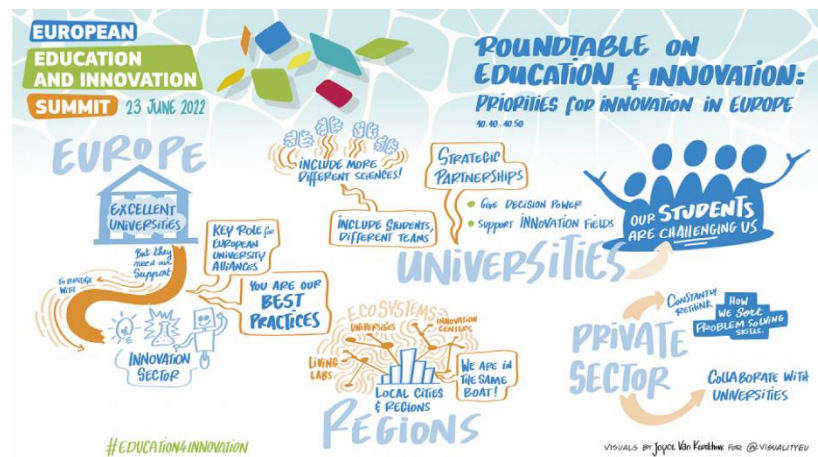 EUROPEAN
EDUCATION
AND INNOVATION
SUMMIT 23 JUNE 2022
ROUNDTABLE ON
EDUCATION & INNOVATION:
PRIORITIES for INNOVATION IN EUROPE
10.10-10.50
EUROPE
EXCELLENT
UNIVERSITIES
But they
need our
Support
TO BRIDGE
WITH
INNOVATION
SECTOR
KEY ROLE for
EUROPEAN
UNIVERSITY
ALLIANCES
YOU ARE OUR
BEST
PRACTICES
INCLUDE MORE
DIFFERENT SCIENCES!
INCLUDE STUDENTS,
DIFFERENT TEAMS
STRATEGIC
PARTNERSHIPS
GIVE DECISION POWER
SUPPORT INNOVATION FIELDS
UNIVERSITIES
OUR STUDENTS
ARE CHALLENGING US
ECOSYSTEMS
UNIVERSITIES
INNOVATION
CENTERS
LIVING
LABS
LOCAL CITIES
& REGIONS
WE ARE IN
THE SAME
BOAT!
REGIONS
PRIVATE
SECTOR
CONSTANTLY
RETHINK
HOW
WE SORT
PROBLEM SOLVING
SKILLS.
COLLABORATE WITH
UNIVERSITIES
#EDUCATION4INNOVATION
VISUALS BY Joyce Van FOR @VISUALITYEU